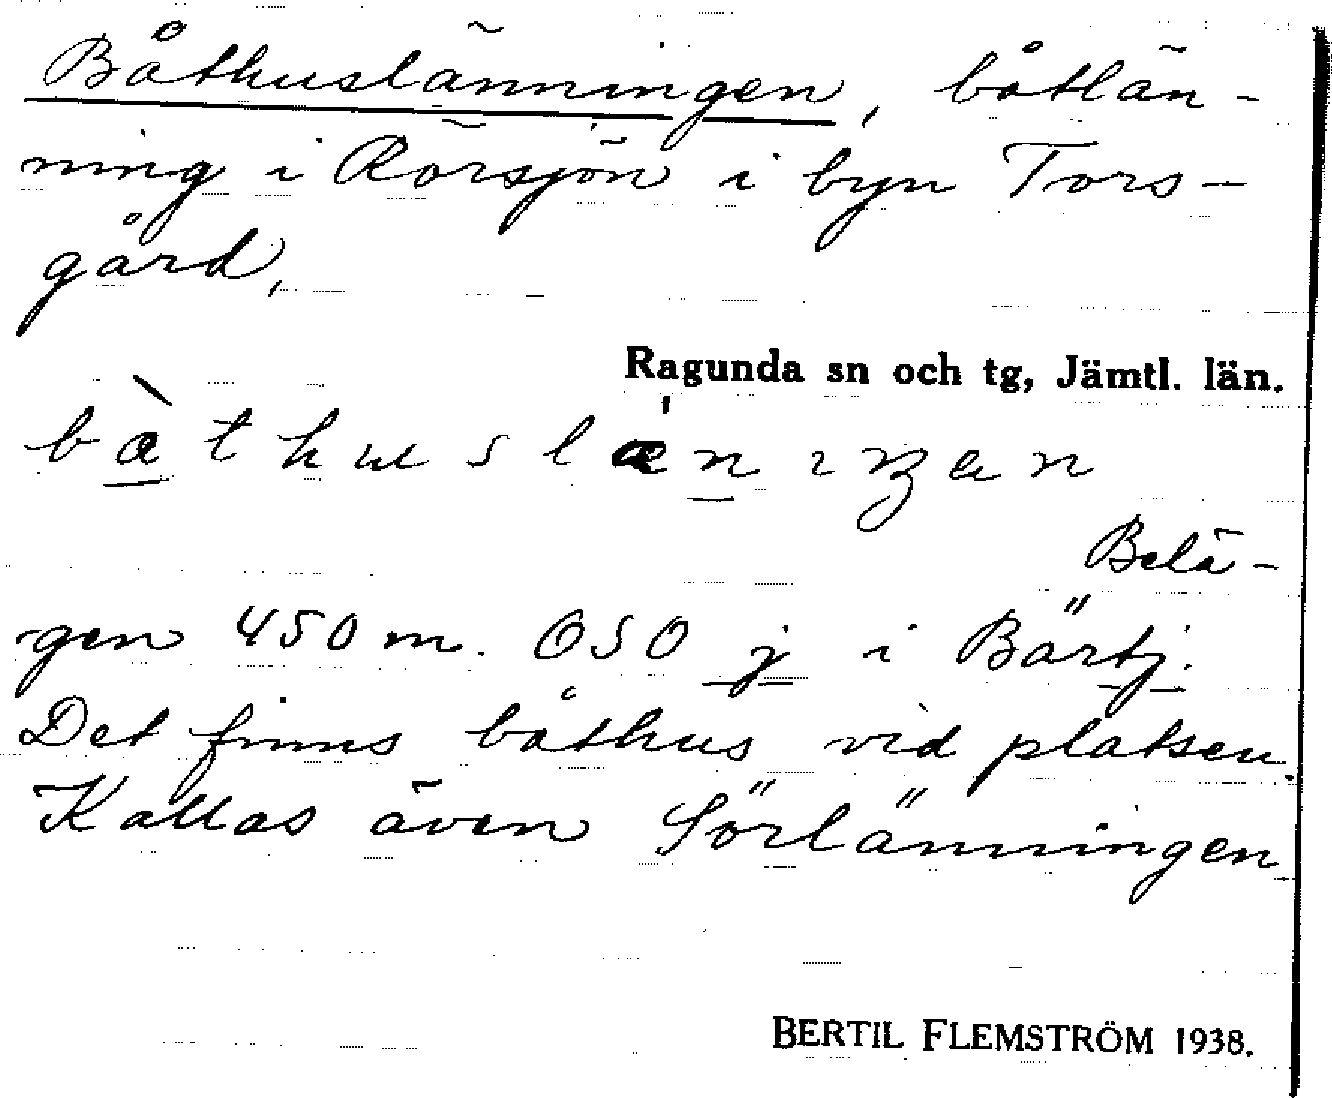 Båthuslänningen, båtlän-
ning i Rörsjön i byn Tors-
gård,
Ragunda sn och tg, Jämtl. län.
Belä-
gen 450 m. OSO j i Börtj.
Det finns båthus vid platsen.
Kallas även Sörlänningen
BERTIL FLEMSTRÖM 1938.